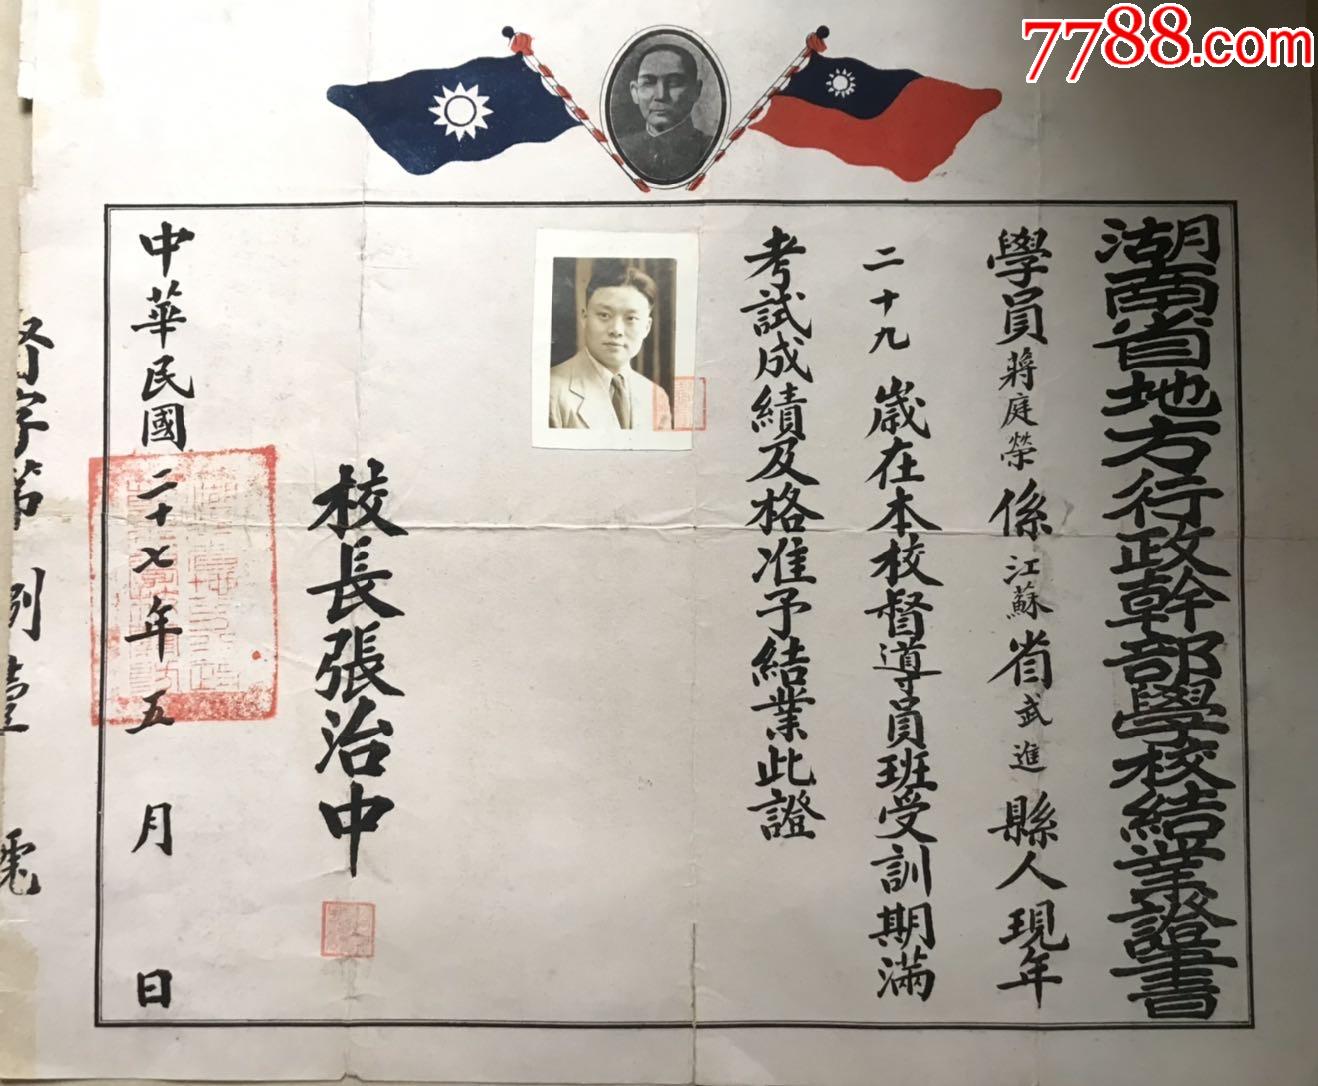 7788.com
湖南省地方行政幹部學校結業證書
學員蔣庭榮係江蘇省武進縣人現年
二十九歲在本校督導員班受訓期滿
考試成績及格准予結業此證
校長張治中
中華民國二十七年五月日
字第捌壹號